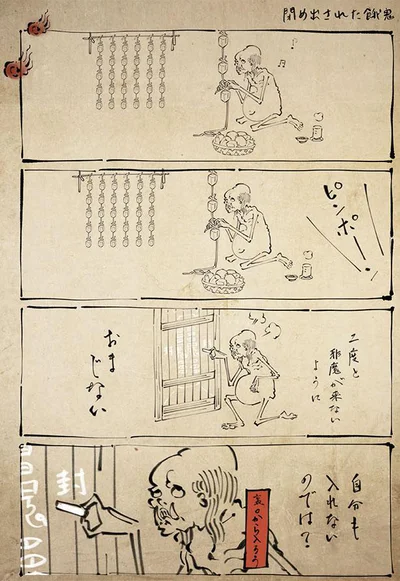 閉め出された餓鬼
ピンポーン
二度と
邪魔が来ない
ように
おま
じない
自分も
入れない
のでは?
裏口から入ろう
封